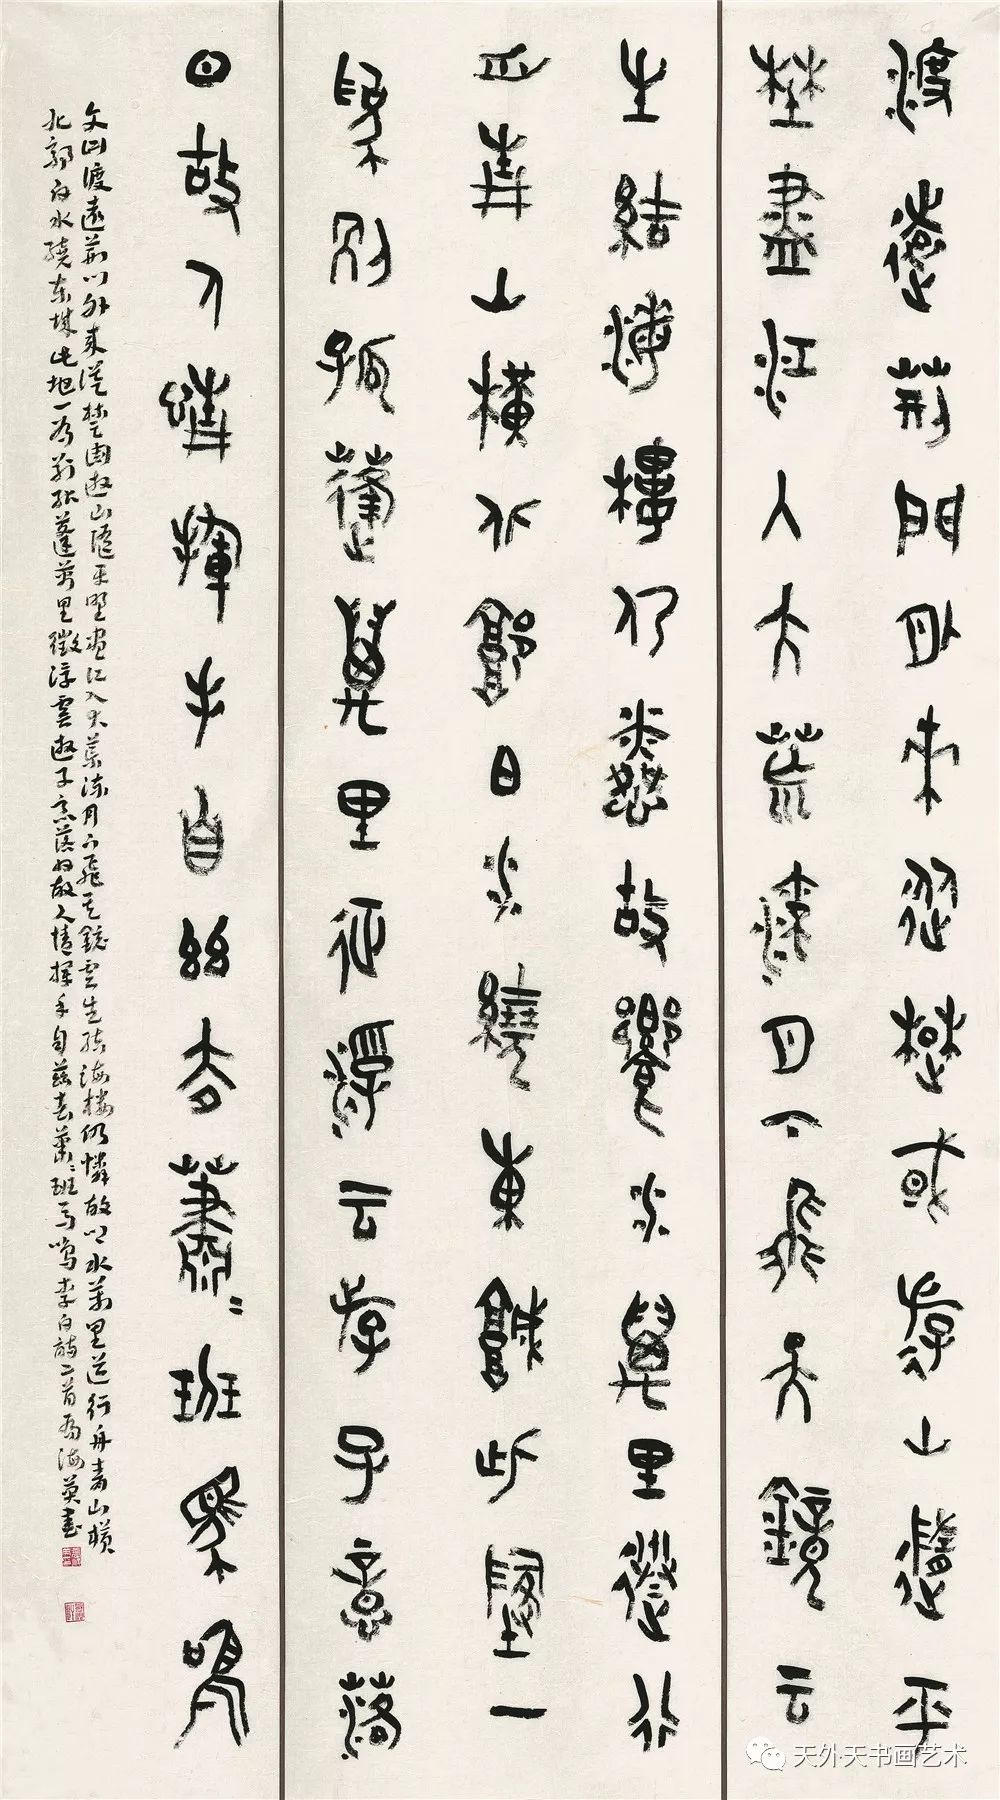 渡遠荊門外來從楚或游山隨平
埜盡江入大荒流月下飛天鏡云
生結海樓仍憐故鄉水萬里送行
舟青山橫北郭白水繞東城此地一
為別孤蓬萬里征浮云斿子意落
日故人情揮手自茲去蕭〻班馬鳴
文曰渡遠荊門外來從楚國遊山隨平野盡江入大荒流月下飛天鏡雲生結海樓仍憐故鄉水萬里送行舟青山橫
北郭白水繞東城此地一為別孤蓬萬里徵浮雲遊子意落日故人情揮手自茲去蕭〻班馬鳴李白詩二首為海英書
天外天书画艺术